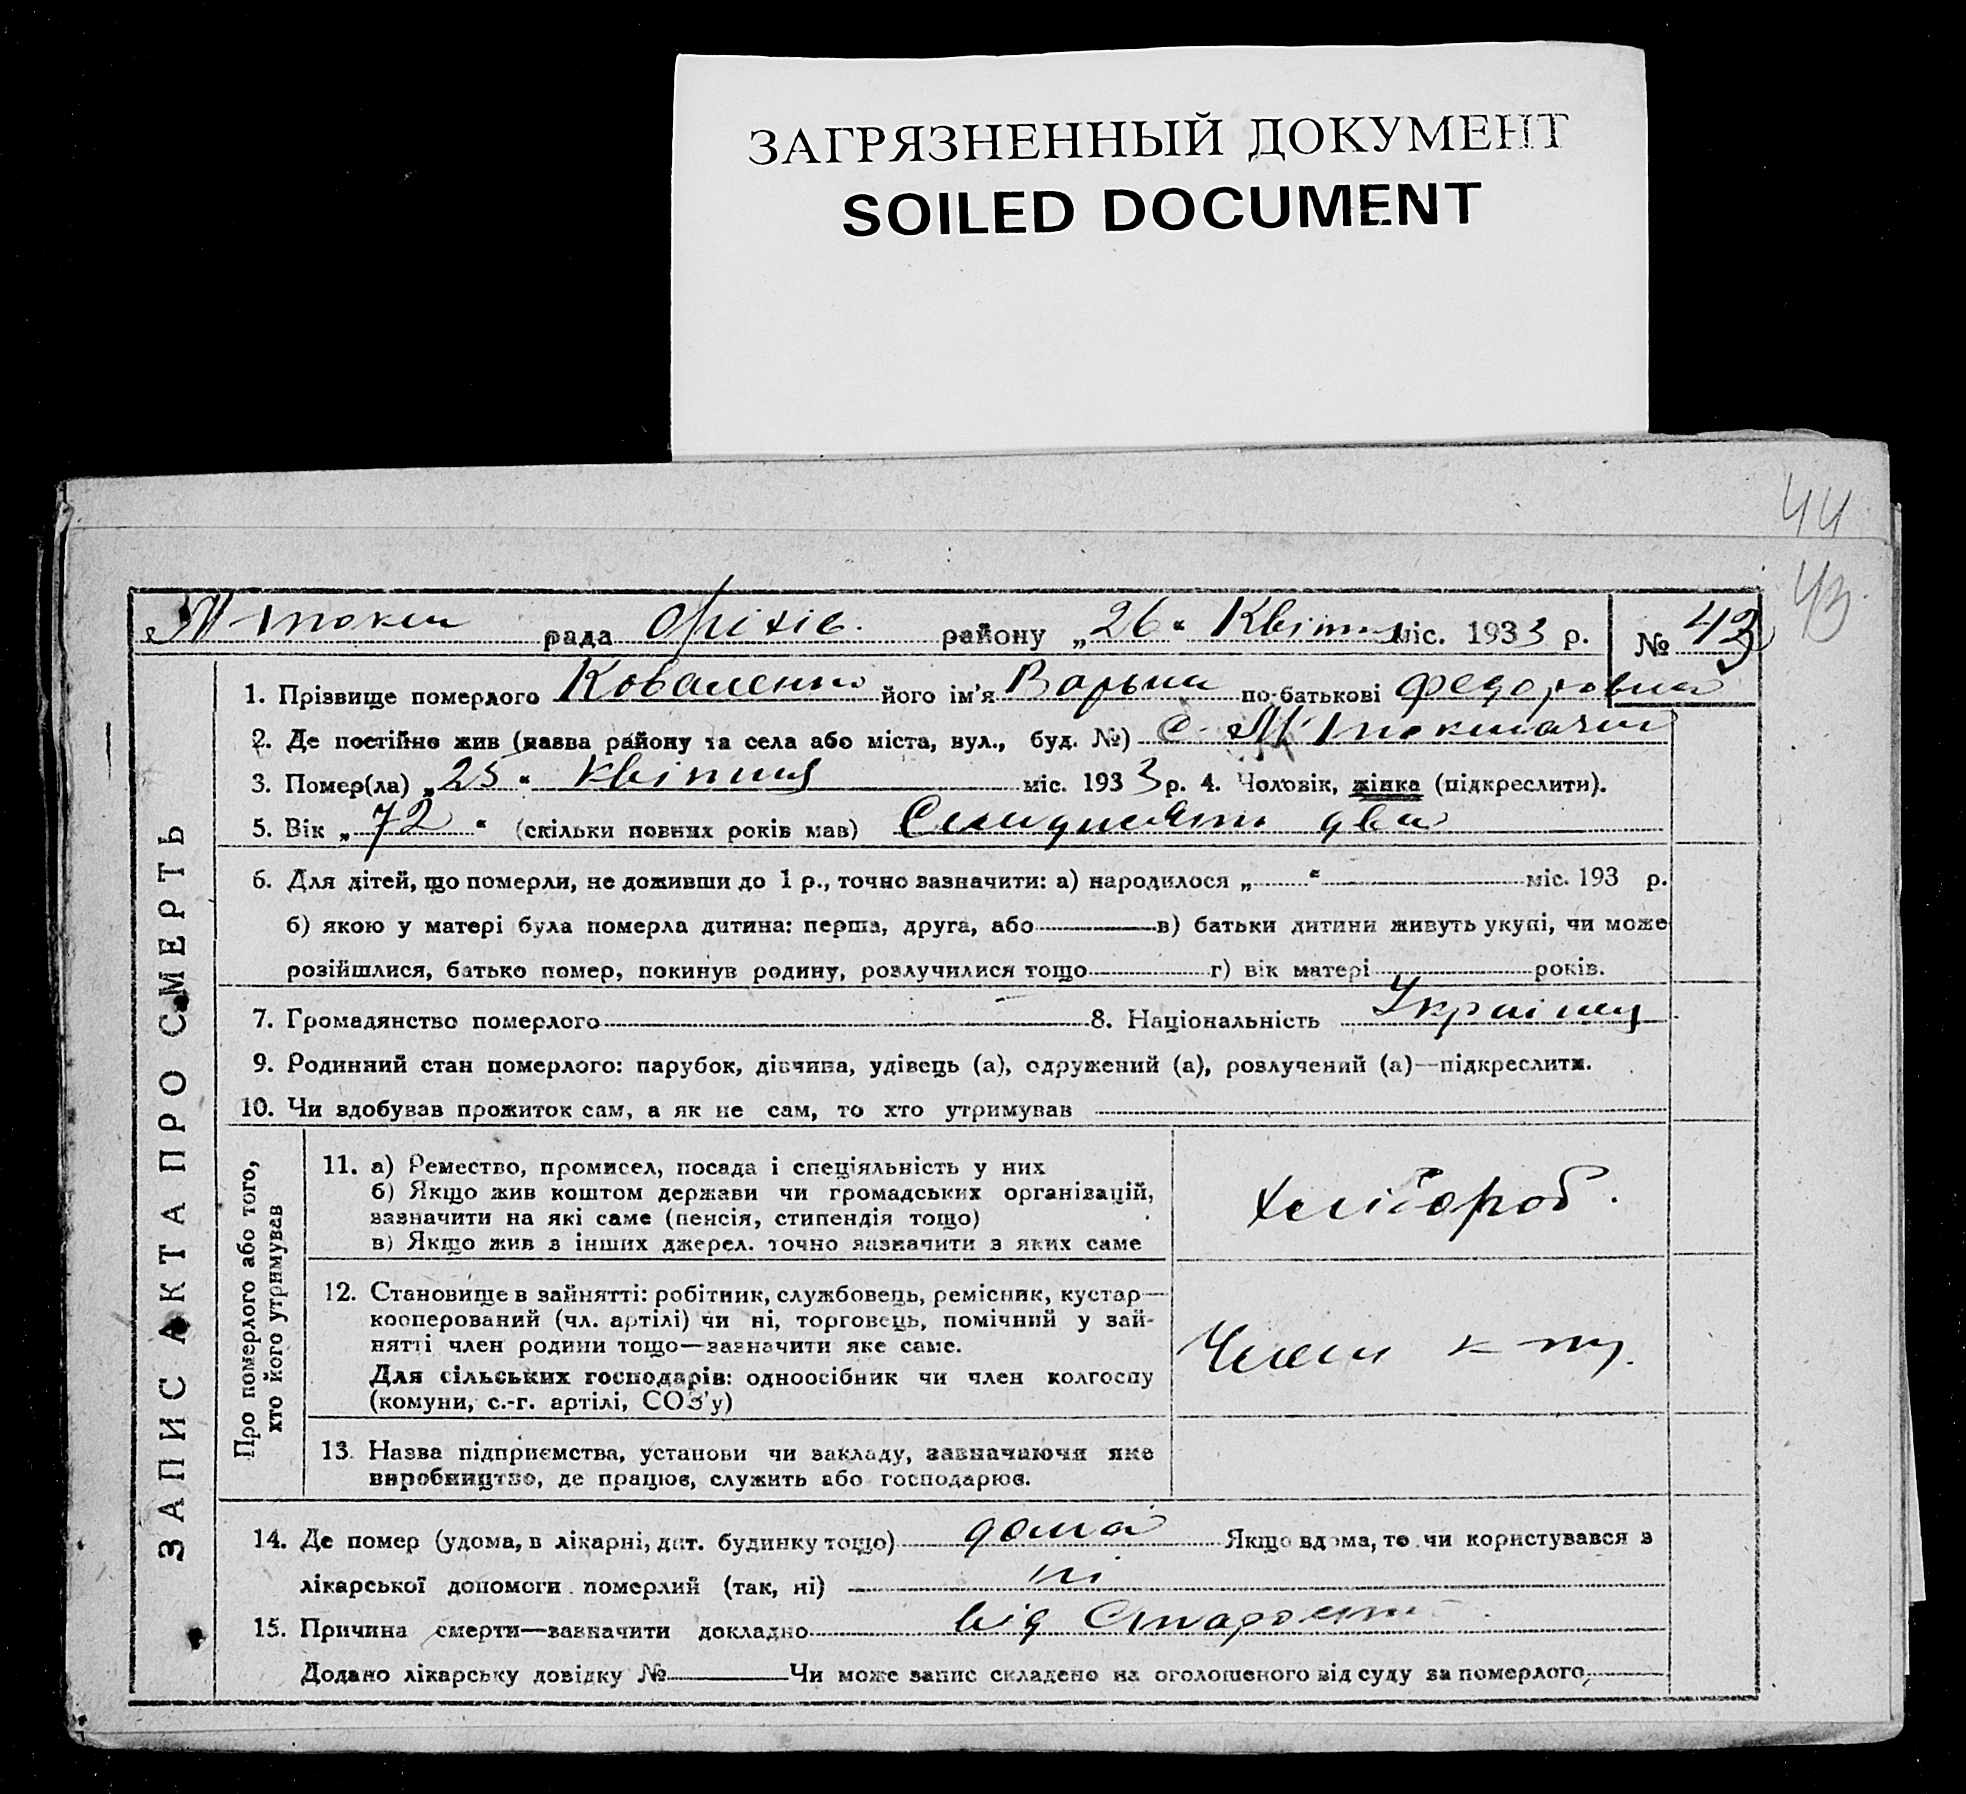 ЗАГРЯЗНЕННЫЙ ДОКУМЕНТ
SOILED DOCUMENT
44
43
М Токм рада Оріхів. району „26“ Квітня міс. 1933 р. № 43
1. Прізвище померлого Коваленко його ім'я Варька по-батькові Федоровна
2. Де постійно жив (назва району та села або міста, вул., буд. №) С. М Токмачки
3. Помер(ла) „25“ квітня міс. 1933 р. 4. Чоловік, жінка (підкреслити).
5. Вік „72“ (скільки повних років мав) Семидисять два
6. Для дітей, що померли, не доживши до 1 р., точно зазначити: а) народилося „ “ міс. 193 р.
б) якою у матері була померла дитина: перша, друга, або в) батьки дитини живуть укупі, чи може
розійшлися, батько помер, покинув родину, розлучилися тощо г) вік матері років.
7. Громадянство померлого 8. Національність Українц
9. Родинний стан померлого: парубок, дівчина, удівець (а), одружений (а), розлучений (а)—підкреслити.
10. Чи здобував прожиток сам, а як не сам, то хто утримував
ЗАПИС АКТА ПРО СМЕРТЬ
Про померлого або того,
хто його утримував
11. а) Ремество, промисел, посада і спеціяльність у них
б) Якщо жив коштом держави чи громадських організацій,
зазначити на які саме (пенсія, стипендія тощо)
в) Якщо жив з інших джерел. точно зазначити з яких саме
хлібороб.
12. Становище в зайнятті: робітник, службовець, ремісник, кустар—
кооперований (чл. артілі) чи ні, торговець, помічний у зай-
нятті член родини тощо—зазначити яке саме.
Для сільських господарів: одноосібник чи член колгоспу
(комуни, с.-г. артілі, СОЗ'у)
Член к-пу.
13. Назва підприємства, установи чи закладу, зазначаючи яке
виробництво, де працює, служить або господарює.
14. Де помер (удома, в лікарні, дит. будинку тощо) дома Якщо вдома, то чи користувався з
лікарської допомоги померлий (так, ні) ні
15. Причина смерти—зазначити докладно від Старости
Додано лікарську довідку № Чи може запис складено на оголошеного від суду за померлого,